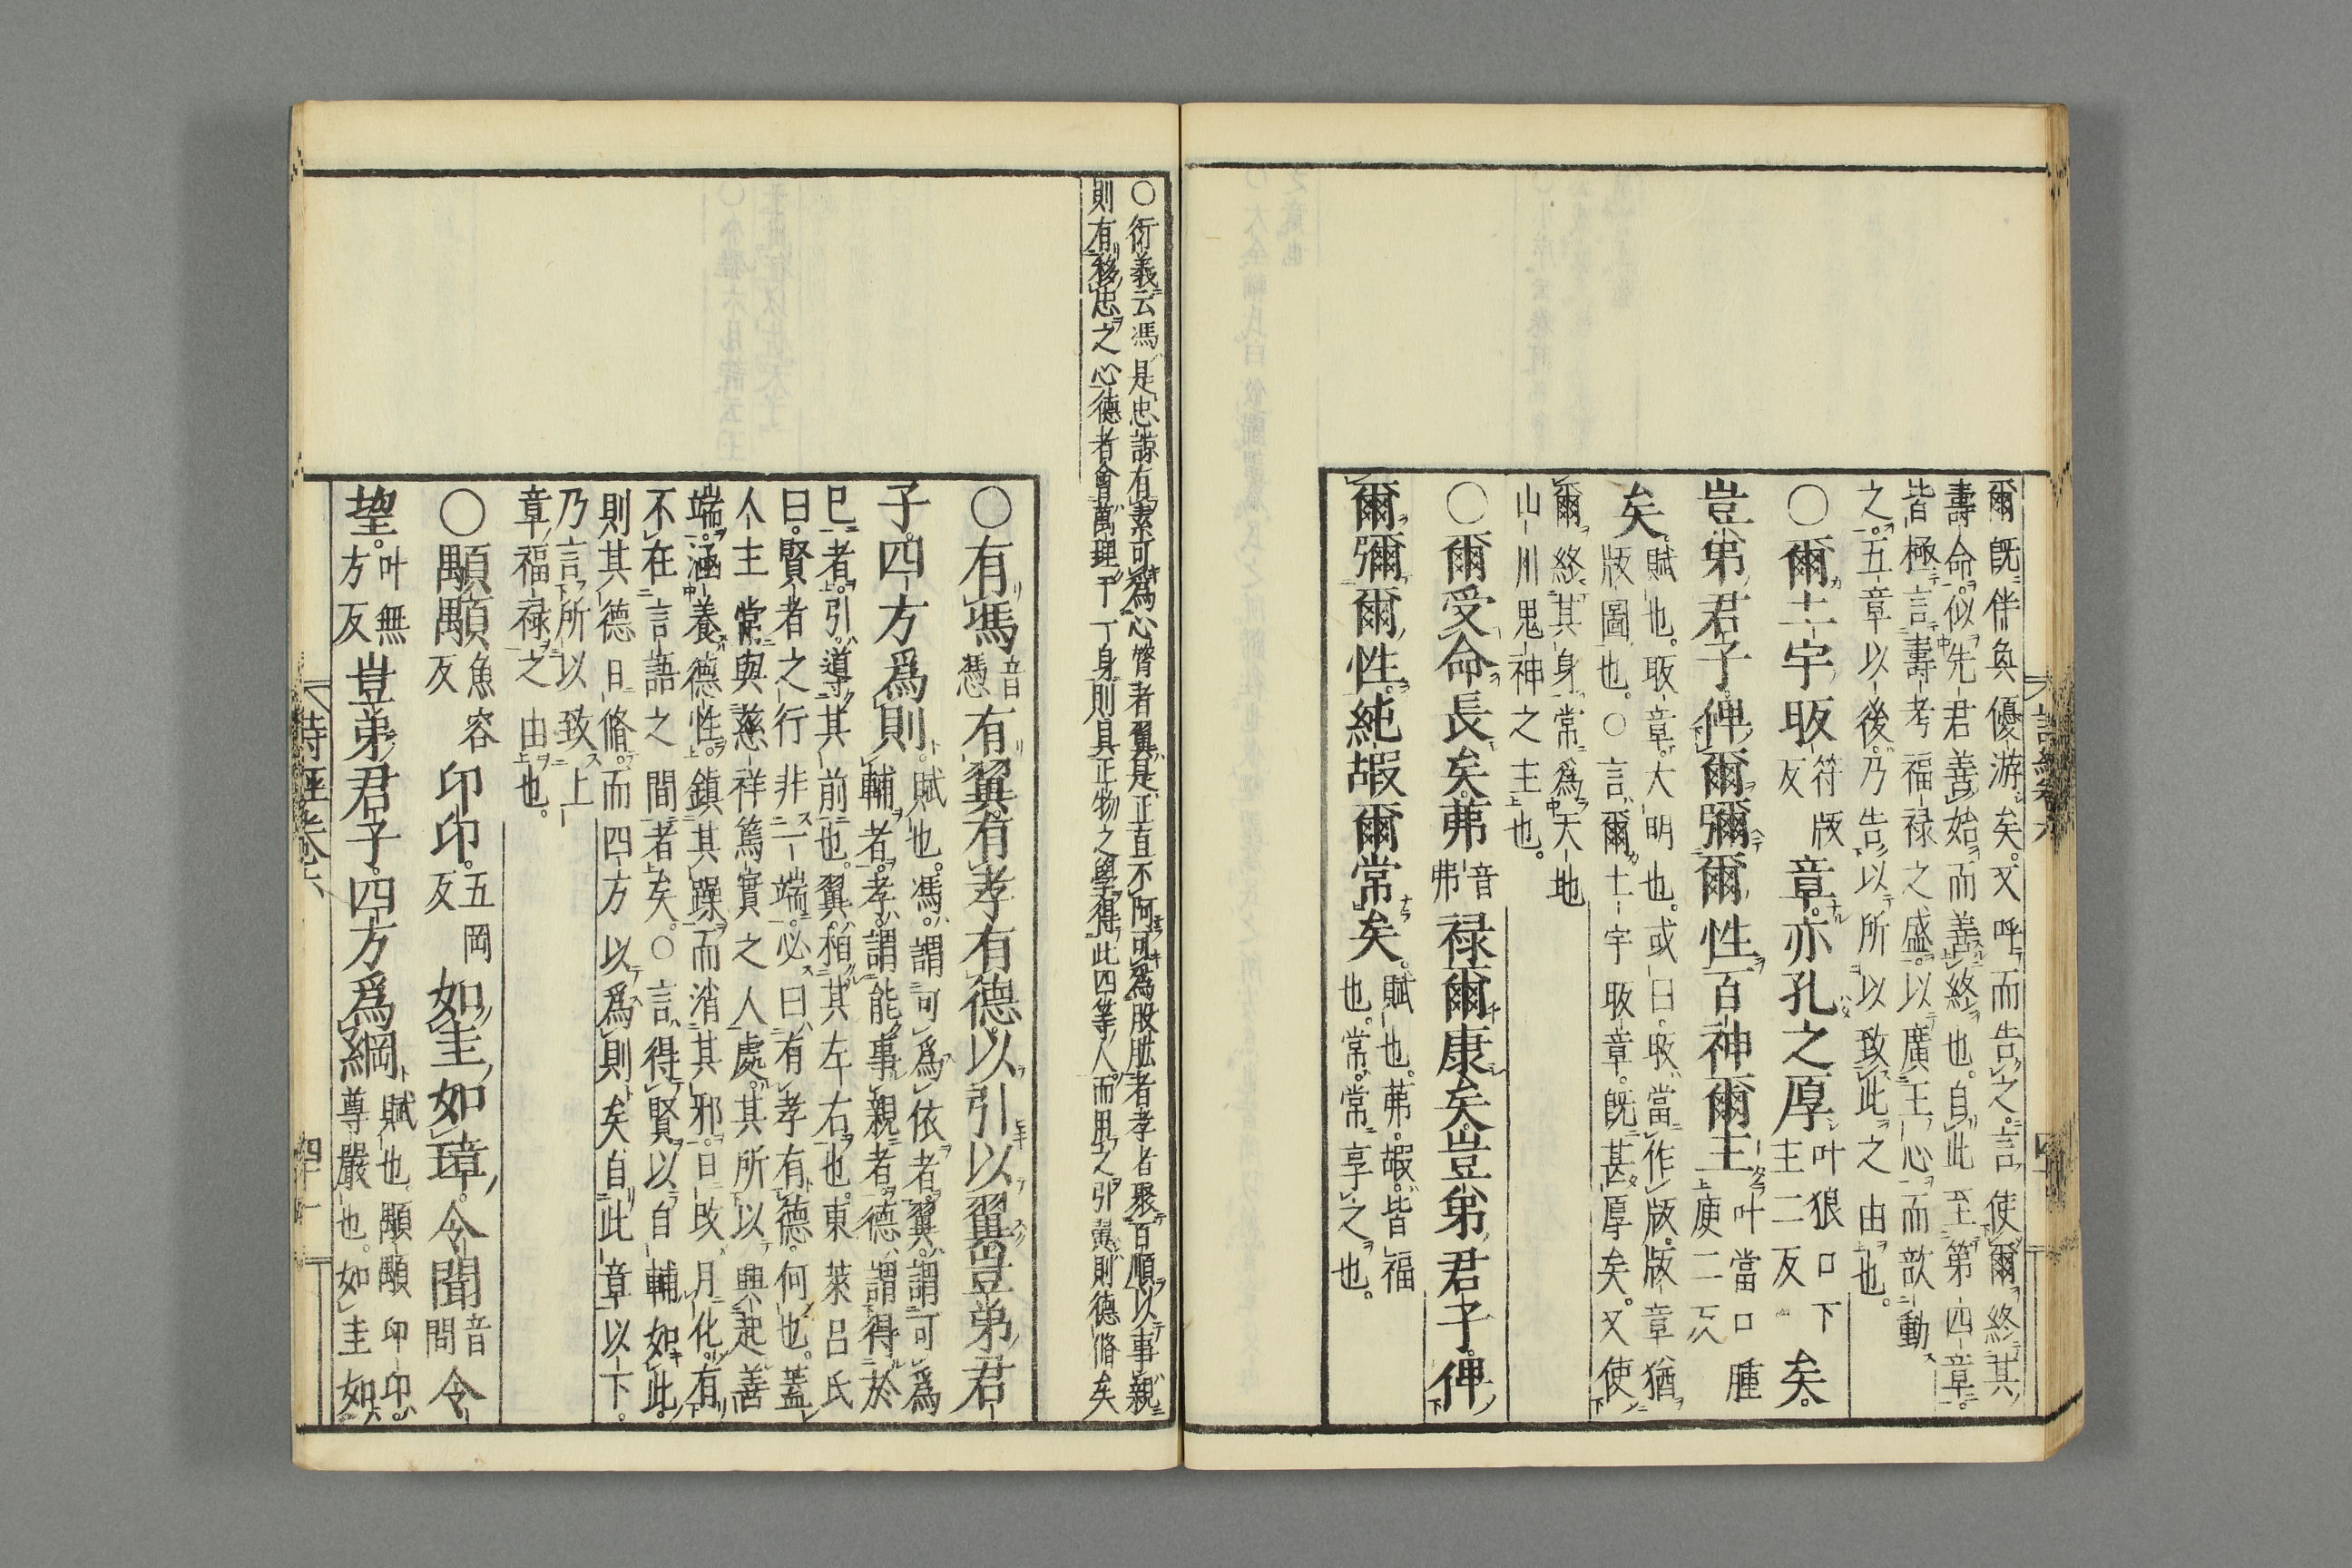 爾既伴奐優游矣。又呼而告之。言使爾終其
壽命。似先君善始而善終也。自此至第四章。
皆極言壽考福禄之盛。以廣王心而歆動
之。五章以後。乃告以所以致此之由也。
〇爾土宇昄符版反章。亦孔之厚叶狼口下主二反矣。
豈弟君子俾爾彌爾性。百神爾主叶當口腫庾二反
矣。賦也。昄章。大明也。或曰。昄當作版。版章猶
版圖也。〇言爾土宇昄章。既甚厚矣。又使
爾終其身常為天地
山川鬼神之主也。
〇爾受命長矣。茀音弗禄爾康矣。豈弟君子。俾
爾彌爾性。純嘏爾常矣。賦也。茀。嘏。皆福也。常。常享之也。
〇衍義云馮是忠諒有素可為心膂者翼是正直不阿可為股肱者孝者聚百順以事親
則有移忠之心德者會萬理于一身則具正物之學得此四等人而用之引翼則德脩矣
〇有馮音憑有翼。有孝有德。以引以翼。豈弟君
子。四方爲則。賦也。馮。謂可為依者。翼。謂可為
輔者。孝。謂能事親者。德。謂得於
己者。引。導其前也。翼。相其左右也。東萊呂氏
曰。賢者之行非一端。必曰有孝有德。何也。蓋
人主常與慈祥篤實之人處。其所以興起善
端。涵養德性。鎮其躁而消其邪。日改月化。有
不在言語之間者矣。〇言得賢以自輔如此。
則其德日脩。而四方以為則矣。自此章以下。
乃言所以致上
章福禄之由也。
〇顒顒魚容反卬卬。五岡反如圭如璋。令聞音問令
望。叶無方反豈弟君子。四方爲綱。賦也。顒顒卬卬。尊嚴也。如圭如
詩經卷六